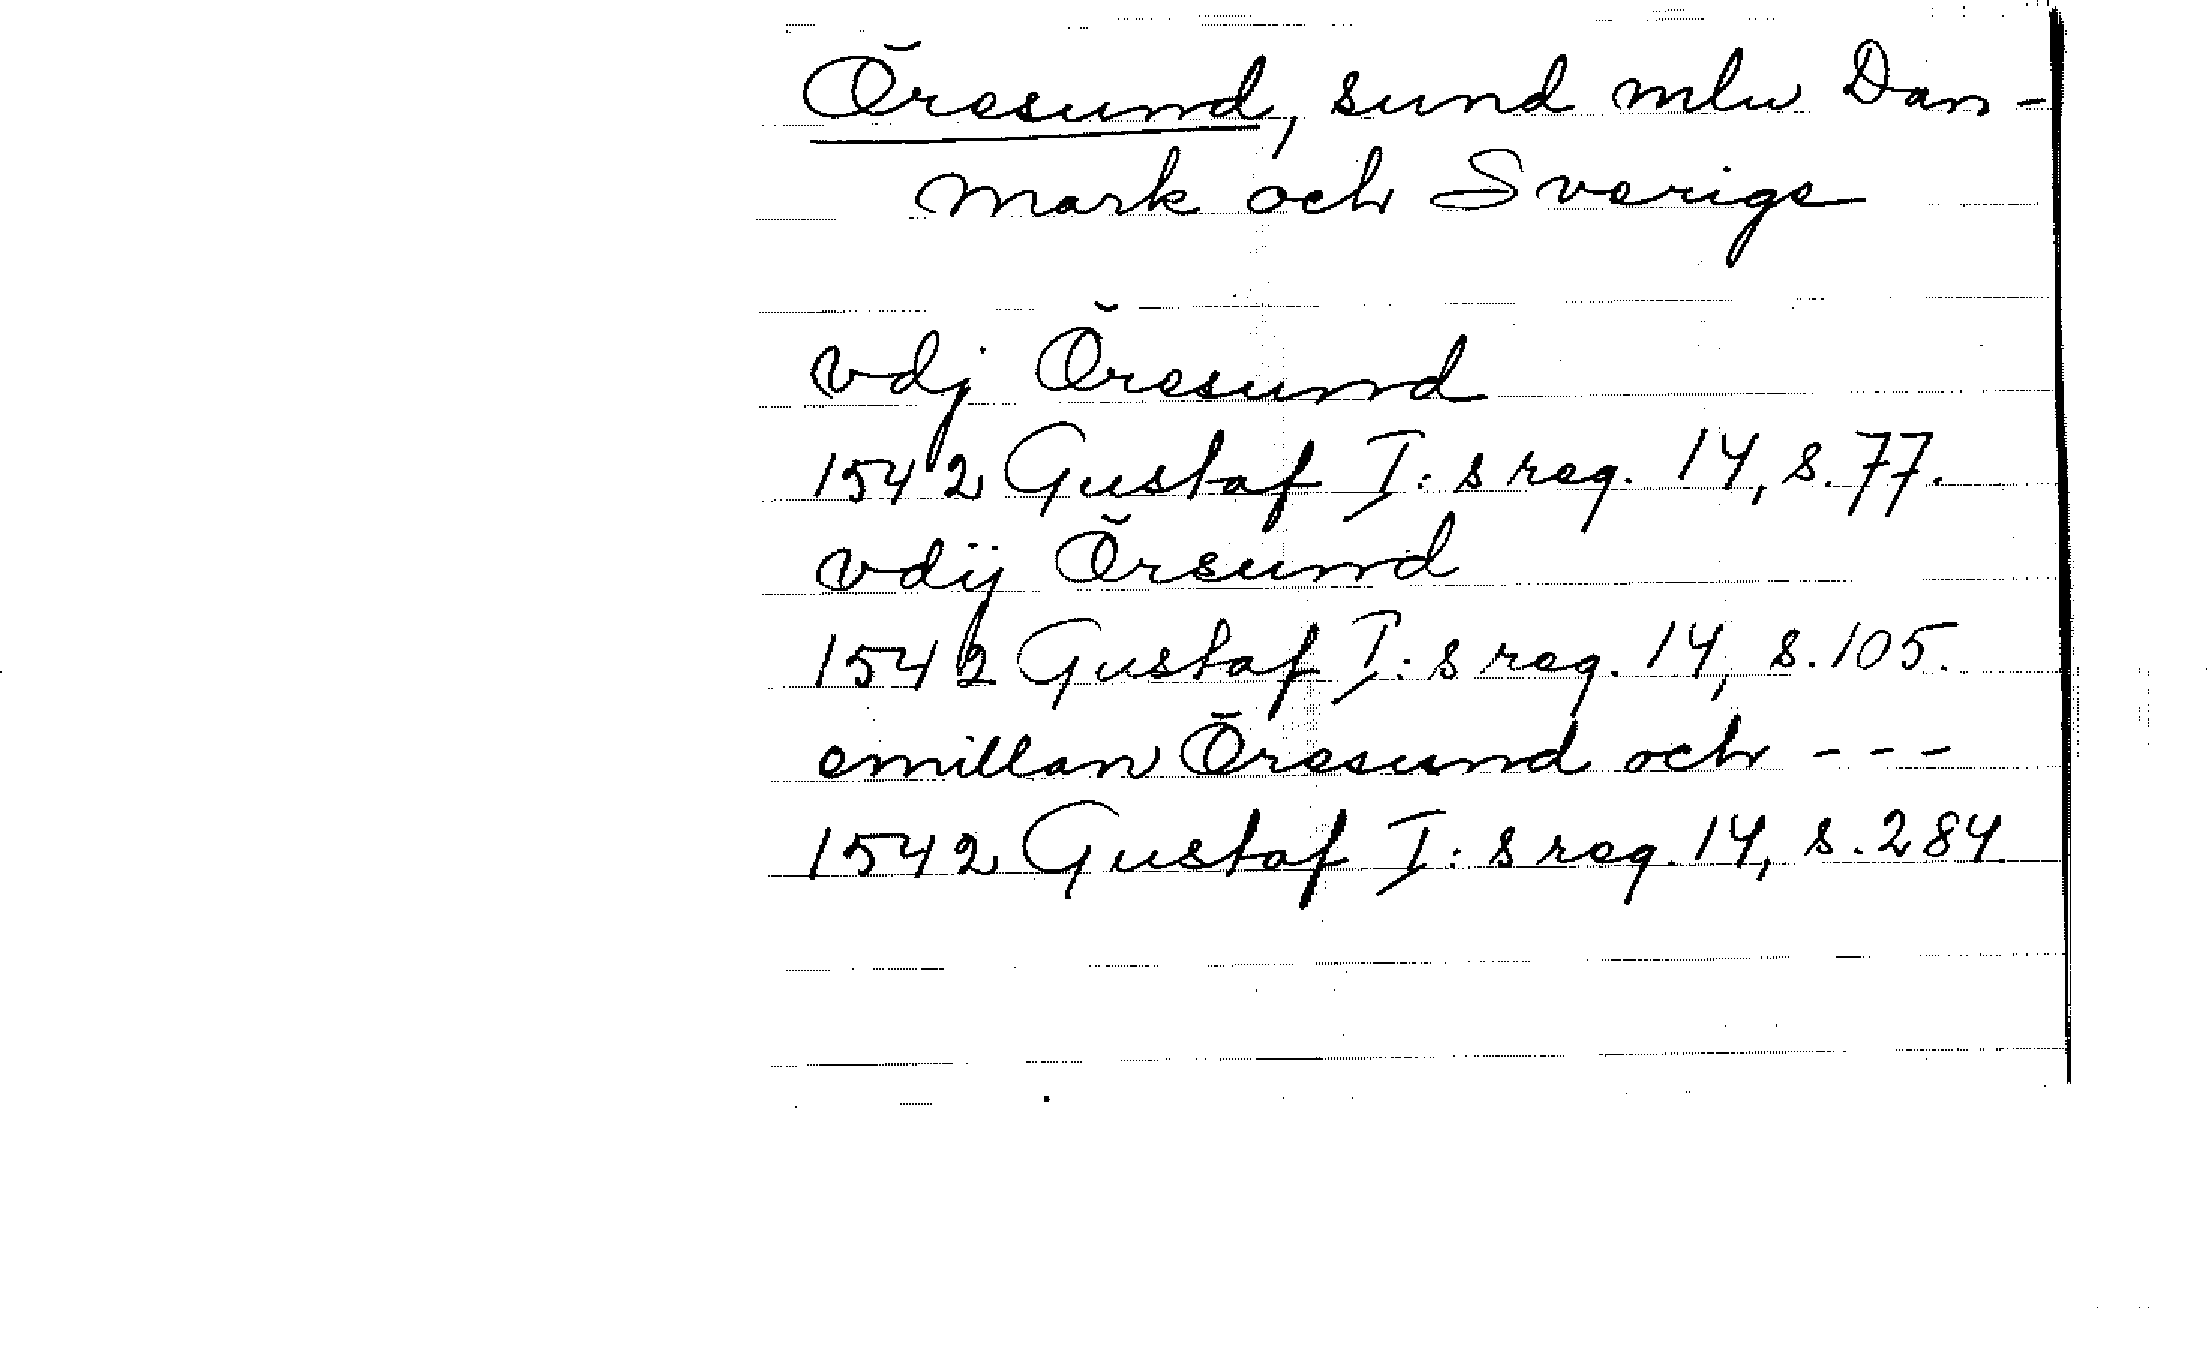 Öresund, sund mlw Dan-
mark och Sverige
vdj Öresund
1542 Gustaf I:s reg. 14, s. 77.
vdij Örsund
1542 Gustaf I:s reg. 14, s. 105.
emillan Öresund och ---
1542 Gustaf I:s reg. 14, s. 284